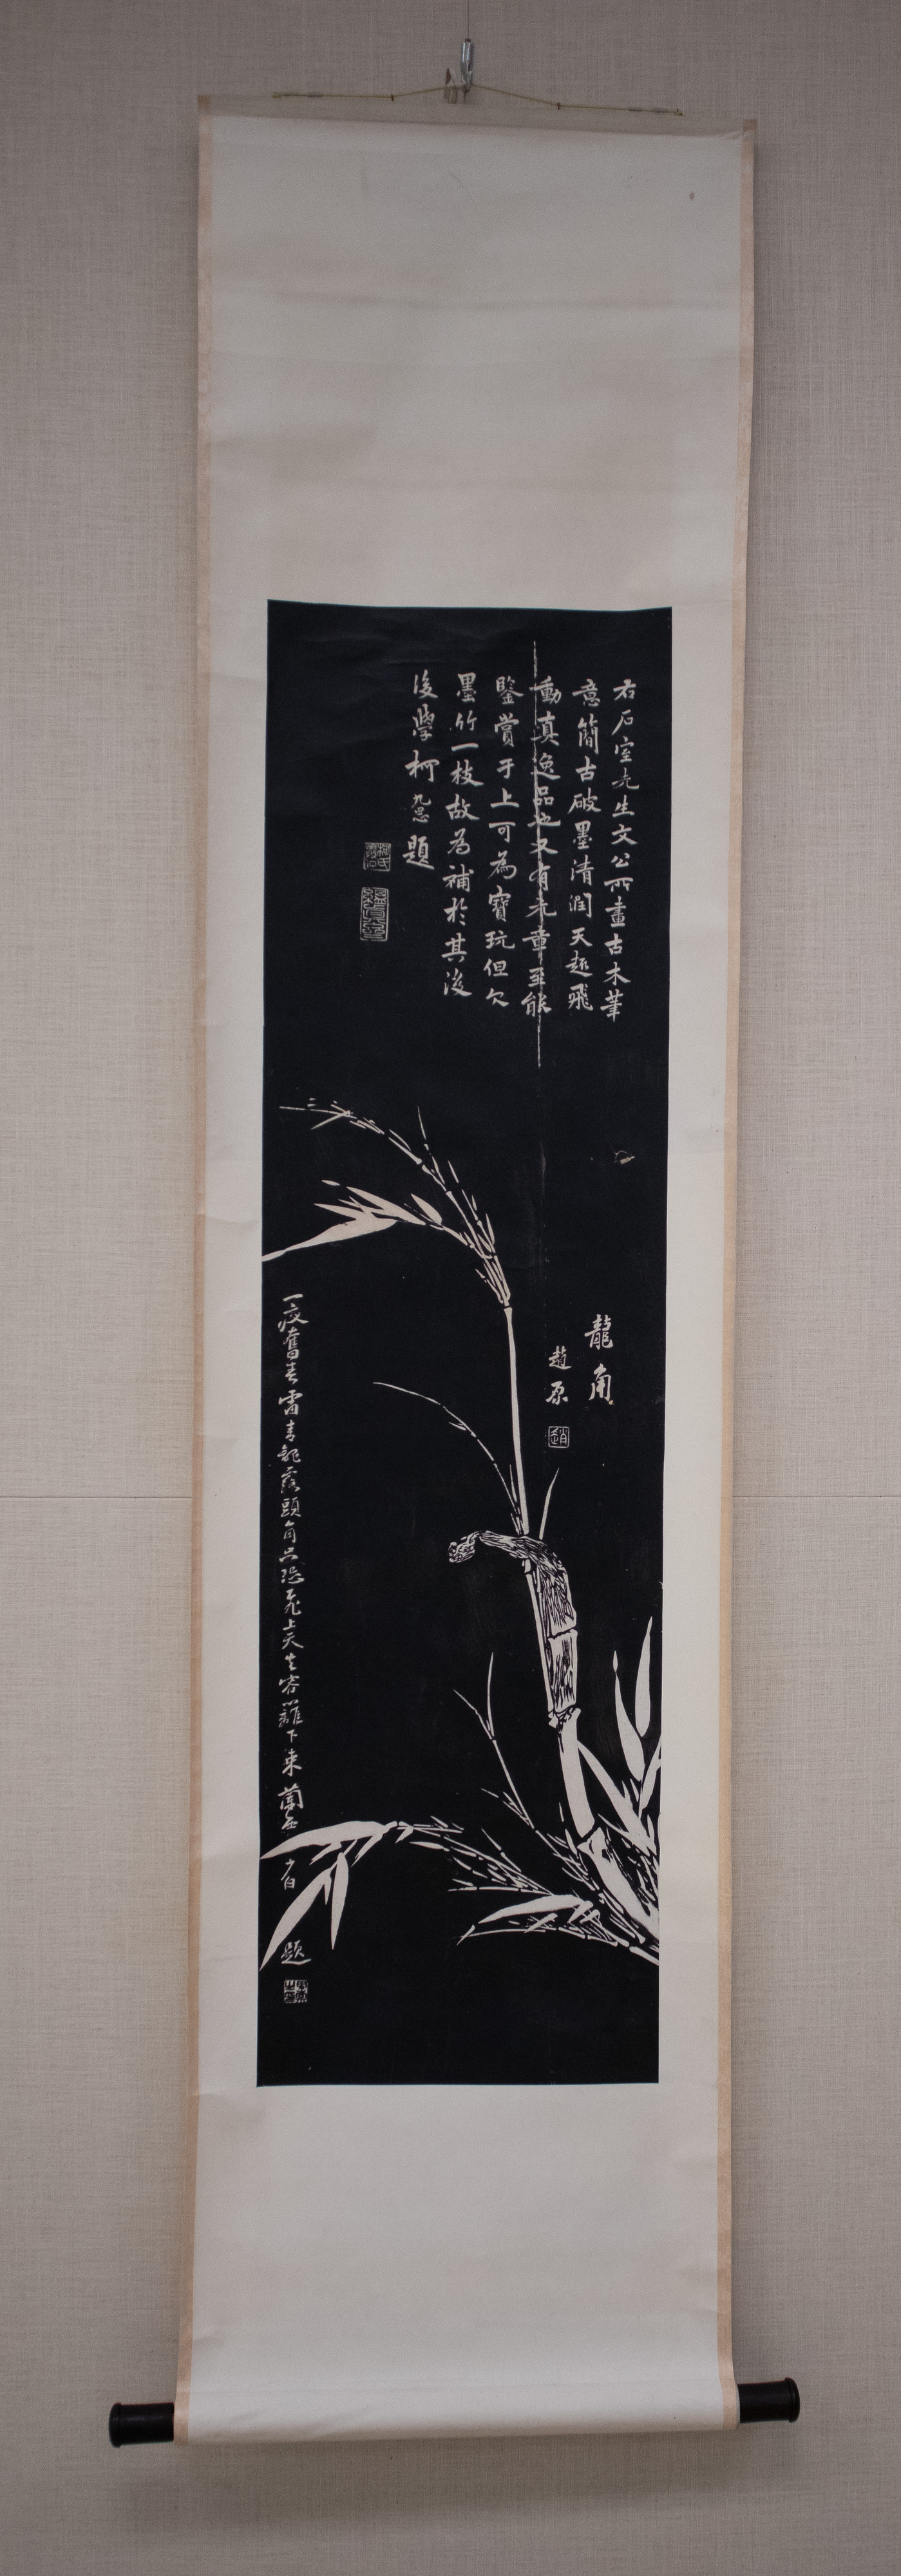 右石室先生文公所畫古木筆
意簡古破墨清潤天趣飛
動真逸品也又有先章至能
鑒賞于上可為寶玩但欠
墨竹一枝故為補於其後
後學柯九思題
龍角
趙原
趙
一夜奮春雷青龍露頭角只恐飛上天生客難下來蘭
題